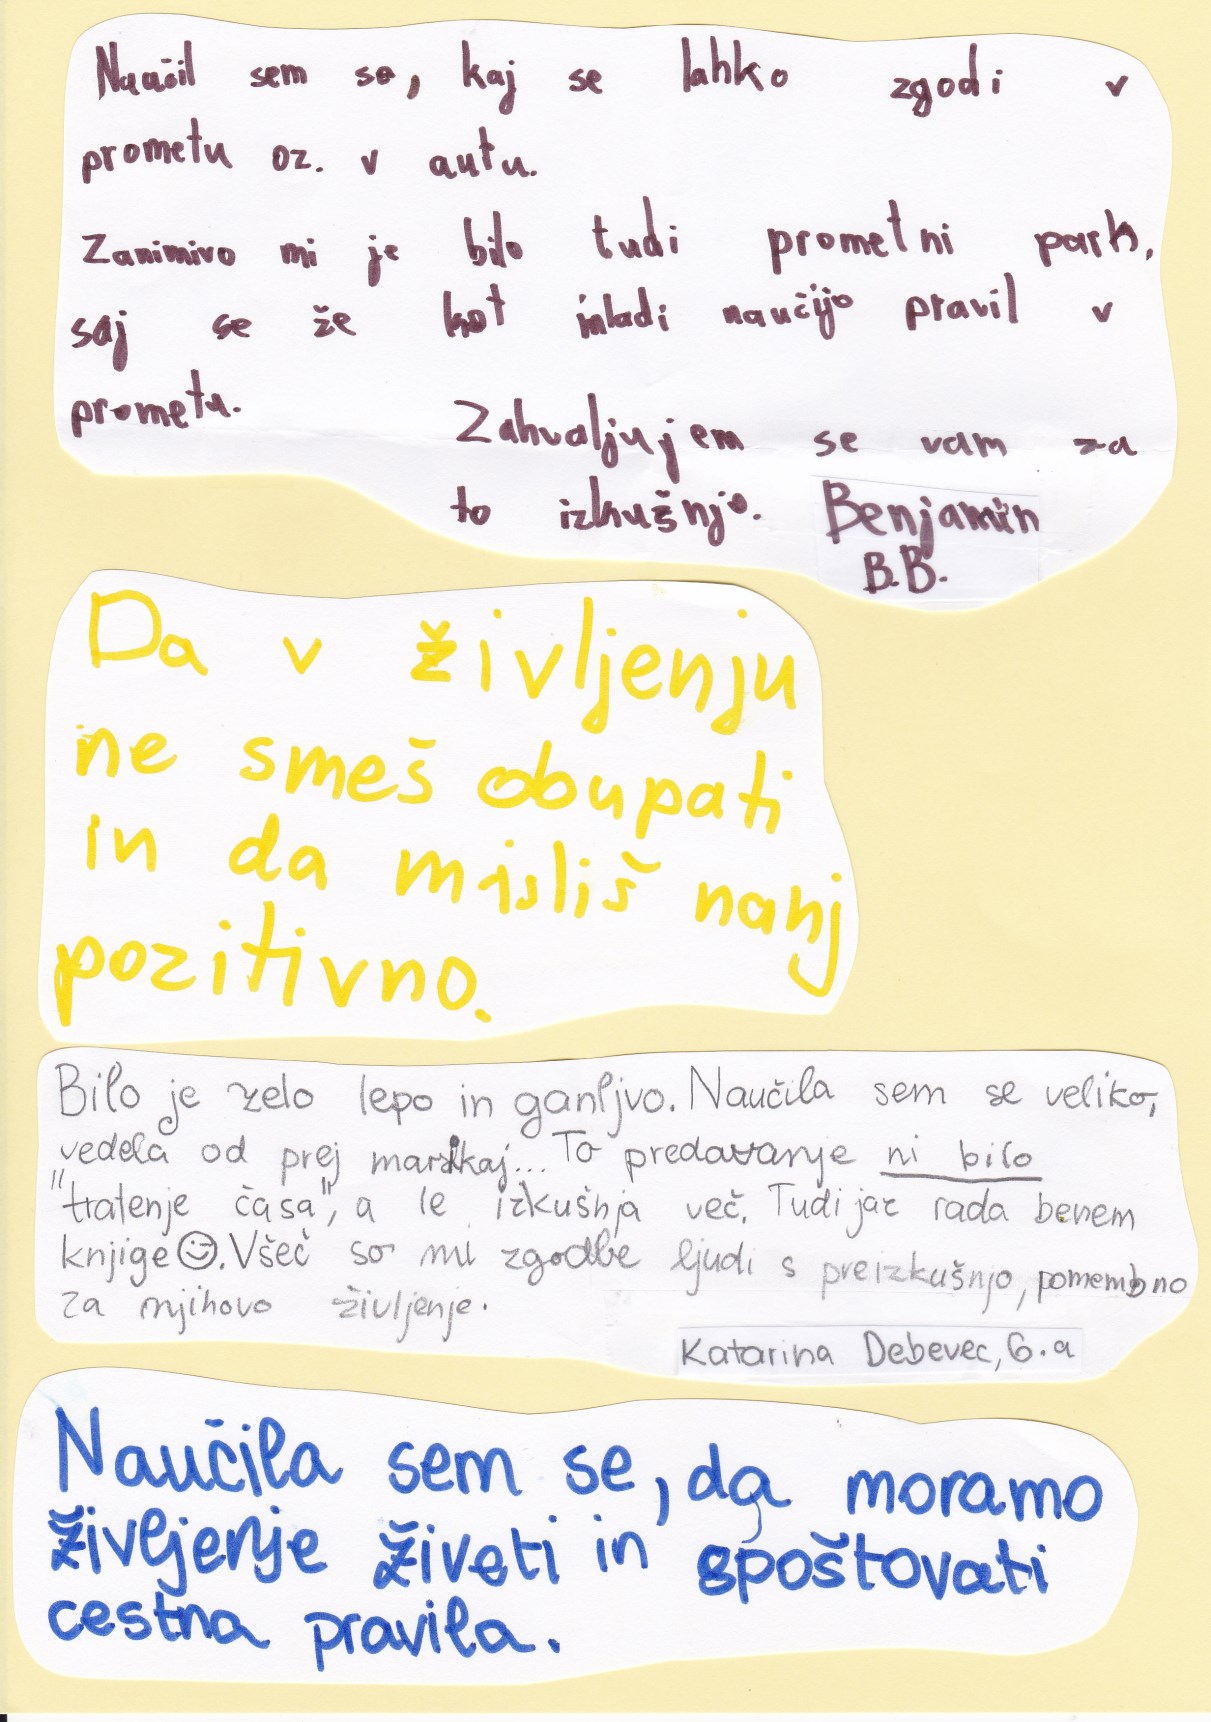 Naučil sem se, kaj se lahko zgodi v
prometu oz. v autu.
Zanimivo mi je bilo tudi prometni park,
saj se že kot mladi naučijo pravil v
prometu.
Zahvaljujem se vam za
to izkušnjo. Benjamin
B.B.
Da v življenju
ne smeš obupati
in da misliš nanj
pozitivno.
Bilo je zelo lepo in ganljvo. Naučila sem se veliko,
vedela od prej marsikaj... To predavanje ni bilo
"tratenje časa", a le izkušnja več. Tudi jaz rada berem
knjige☺. Všeč so mi zgodbe ljudi s preizkušnjo, pomembno
za njihovo življenje.
Katarina Debevec, 6.a
Naučila sem se, da moramo
življenje živeti in spoštovati
cestna pravila.